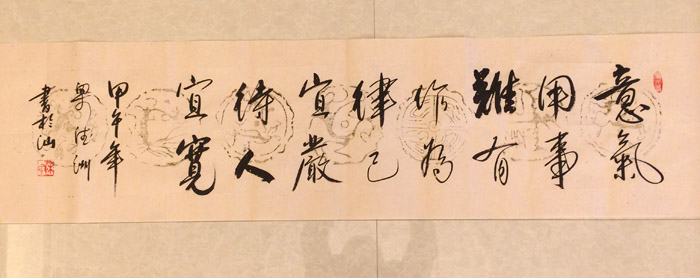 意氣
用事
難有
作為
律己
宜嚴
待人
宜寬
甲午年
梁
書於汕